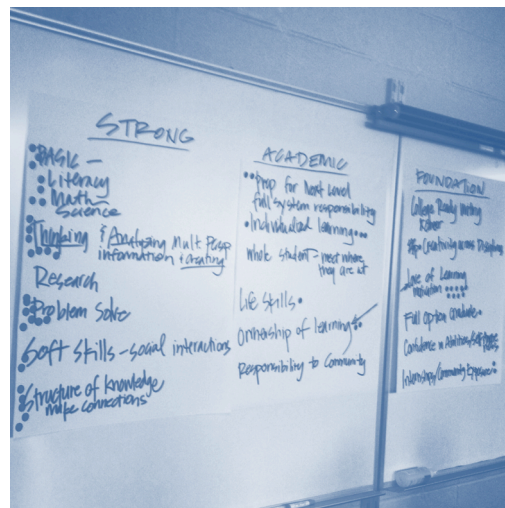 STRONG
BASIC -
Literacy
Math -
Science
Thinking & Analyzing Mult Persp
information & creating
Research
Problem Solve
Soft Skills - social interactions
Structure of Knowledge
make connections
ACADEMIC
Prep for Next Level
full system responsibility
Individualized learning
whole student - meet where
they are at
Life Skills
Ownership of learning
Responsibility to Community
FOUNDATION
College Ready Writing
Creativity across Disciplines
Love of Learning
motivation
Full Option Graduate
Confidence in Abilities/
Internships/Community Exposure